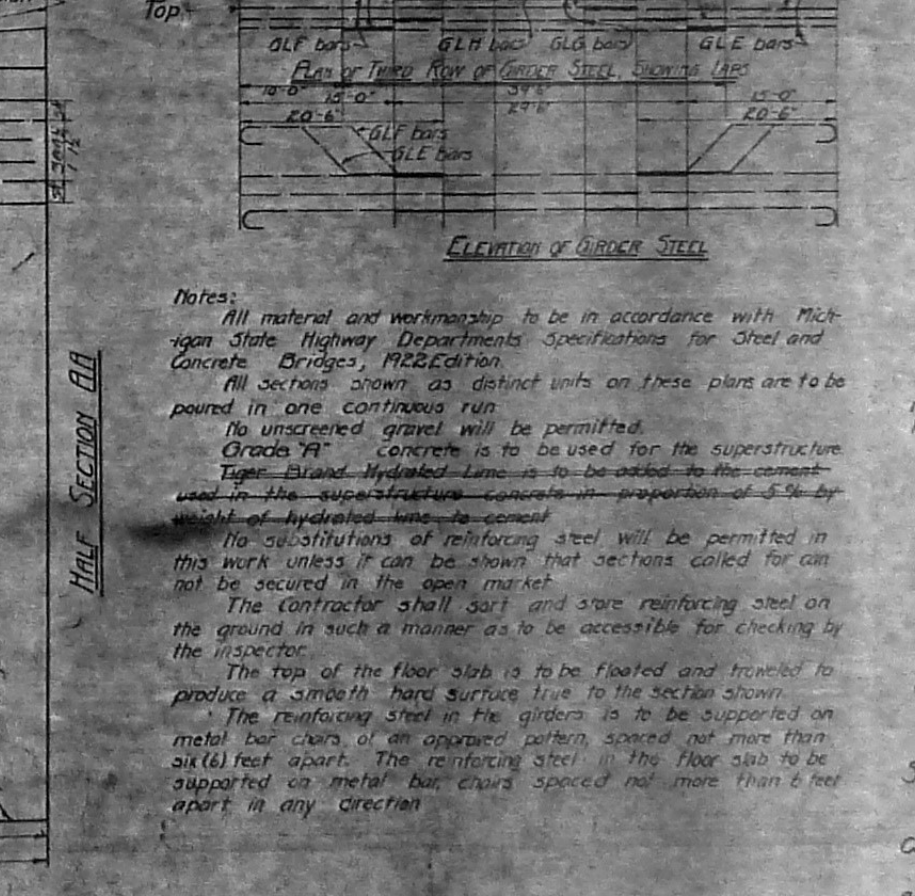 Top
GLF bars
GLH bars
GLG bars
GLE bars
PLAN OF THIRD ROW OF GIRDER STEEL, SHOWING LAPS
15'-0"
15'-0"
20'-6"
20'-6"
GLF bars
GLE bars
ELEVATION OF GIRDER STEEL
HALF SECTION AA
Notes:
All material and workmanship to be in accordance with Mich-
-igan State Highway Departments Specifications for Steel and
Concrete Bridges, 1922 Edition.
All sections shown as distinct units on these plans are to be
poured in one continuous run
No unscreened gravel will be permitted.
Grade "A" concrete is to be used for the superstructure
Tiger Brand Hydrated Lime is to be added to the cement
used in the superstructure concrete in proportion of 5% by
weight of hydrated lime to cement
No substitutions of reinforcing steel will be permitted in
this work unless it can be shown that sections called for can
not be secured in the open market
The Contractor shall sort and store reinforcing steel on
the ground in such a manner as to be accessible for checking by
the inspector.
The top of the floor slab is to be floated and troweled to
produce a smooth hard surface true to the section shown.
The reinforcing steel in the girders is to be supported on
metal bar chairs of an approved pattern, spaced not more than
six (6) feet apart. The reinforcing steel in the floor slab to be
supported on metal bar chairs spaced not more than 6 feet
apart in any direction